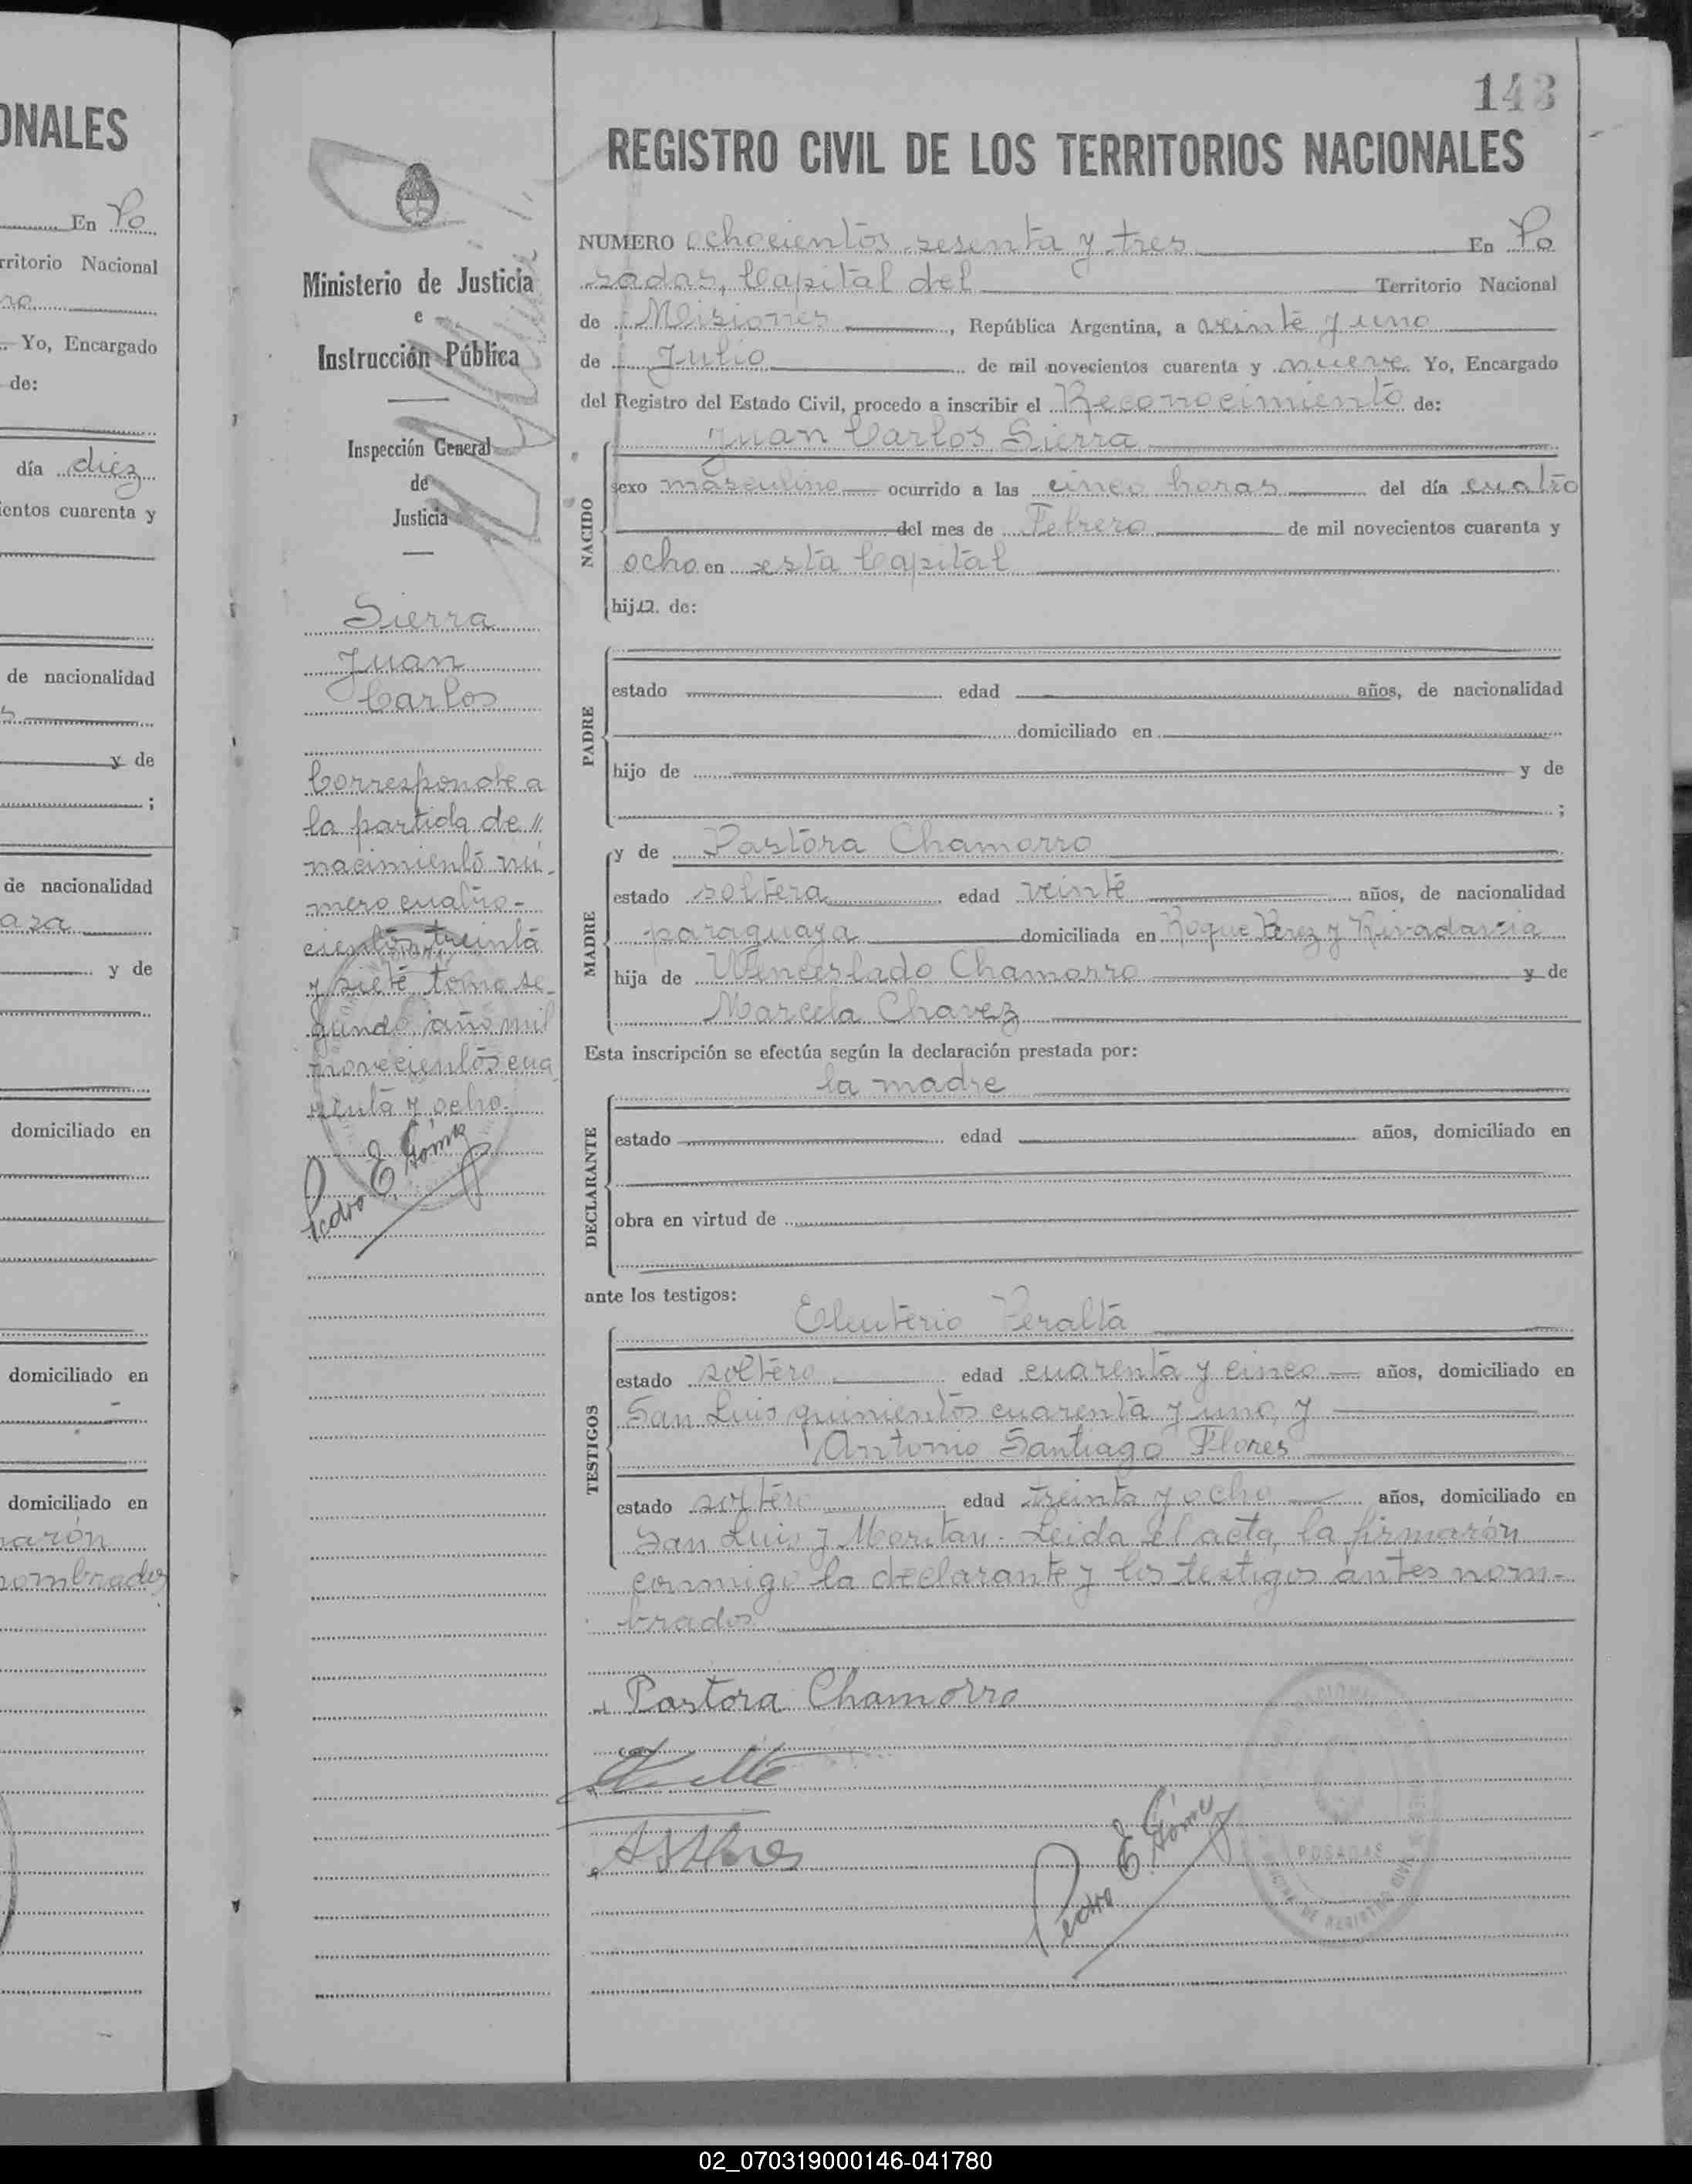 ONALES
En Po
rritorio Nacional
Yo, Encargado
de:
día diez
ientos cuarenta y
de nacionalidad
y de
;
de nacionalidad
y de
domiciliado en
domiciliado en
domiciliado en
narón
nombrados
Ministerio de Justicia
e
Instrucción Pública
Inspección General
de
Justicia
Sierra
Juan
Carlos
Corresponde a
la partida de "
nacimiento nú-
mero cuatro-
cientos treinta
y siete tomo se-
gundo año mil
novecientos cua
renta y ocho.
Pedro E. Gómez
143
REGISTRO CIVIL DE LOS TERRITORIOS NACIONALES
NUMERO ochocientos sesenta y tres En Po
sadas, Capital del Territorio Nacional
de Misiones, República Argentina, a veinte y uno
de Julio de mil novecientos cuarenta y nueve Yo, Encargado
del Registro del Estado Civil, procedo a inscribir el Reconocimiento de:
Juan Carlos Sierra
NACIDO
sexo masculino ocurrido a las cinco horas del día cuatro
del mes de Febrero de mil novecientos cuarenta y
ocho en esta Capital
hijo. de:
PADRE
estado edad años, de nacionalidad
domiciliado en
hijo de y de
;
MADRE
y de Pastora Chamorro
estado soltera edad veinte años, de nacionalidad
paraguaya domiciliada en Roque Perez y Rivadavia
hija de Wenceslado Chamorro y de
Marcela Chavez
Esta inscripción se efectúa según la declaración prestada por:
la madre
DECLARANTE
estado edad años, domiciliado en
obra en virtud de
ante los testigos:
TESTIGOS
Eleuterio Peralta
estado soltero edad cuarenta y cinco años, domiciliado en
San Luis quinientos cuarenta y uno, y
Antonio Santiago Flores
estado soltero edad treinta y ocho años, domiciliado en
San Luis y Moritan. Leida el acta, la firmarón
conmigo la declarante y los testigos antes nom-
brados
Pastora Chamorro
Pedro E. Gómez
POSADAS
DE REGISTRO CIVIL
02_070319000146-041780